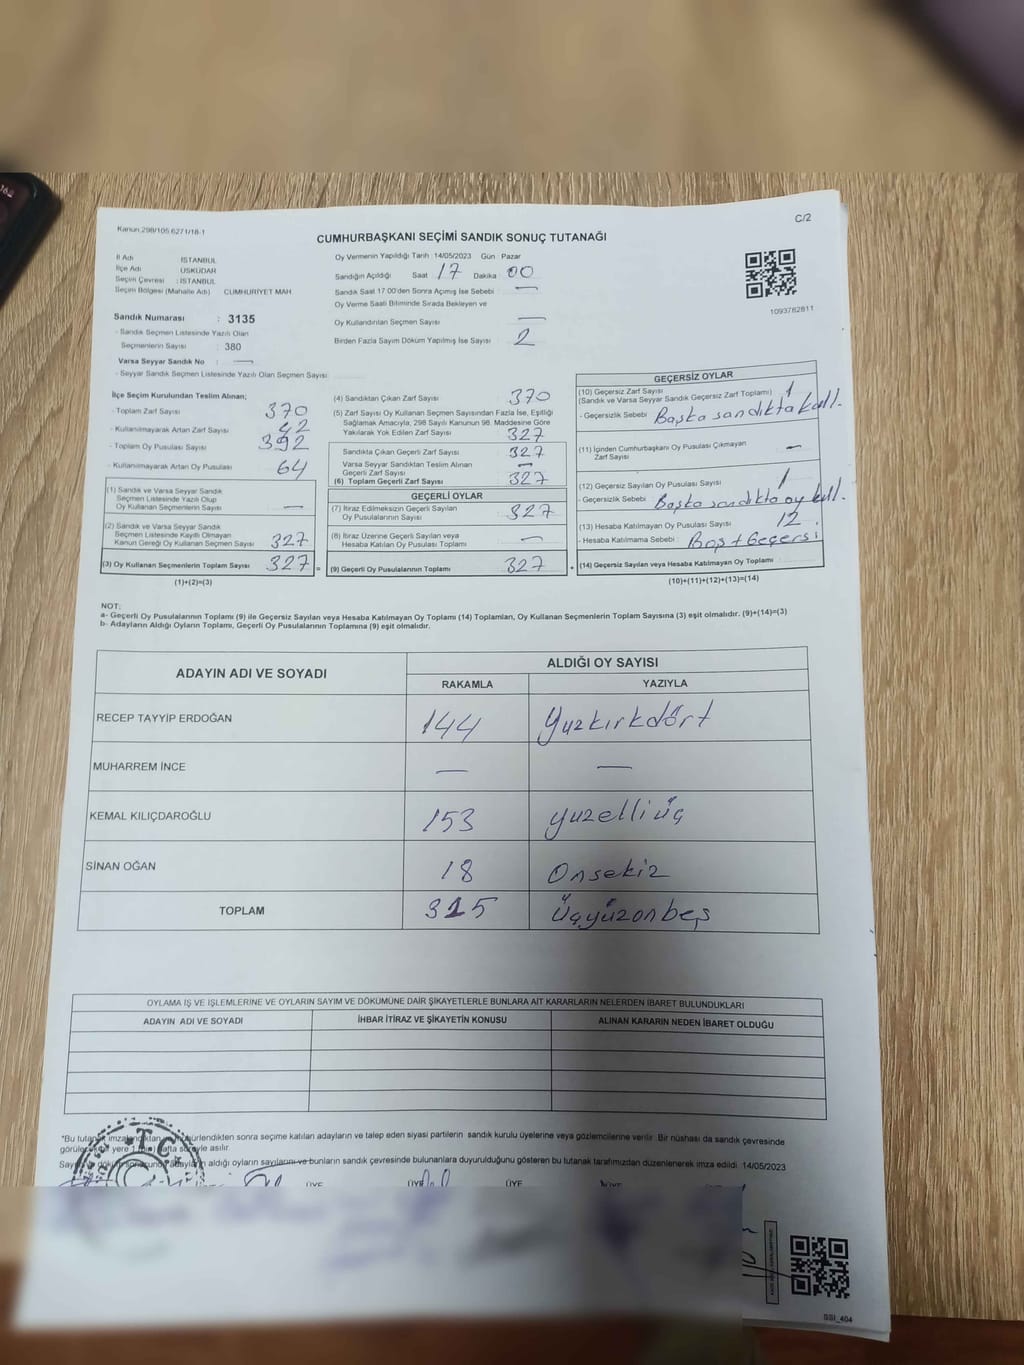 162
C/2
Kanun:298/105.6271/18-1
CUMHURBAŞKANI SEÇİMİ SANDIK SONUÇ TUTANAĞI
İl Adı İSTANBUL
İlçe Adı ÜSKÜDAR
Seçim Çevresi : İSTANBUL
Seçim Bölgesi (Mahalle Adı) CUMHURİYET MAH
Sandık Numarası : 3135
- Sandık Seçmen Listesinde Yazılı Olan
Seçmenlerin Sayısı : 380
Varsa Seyyar Sandık No : —
- Seyyar Sandık Seçmen Listesinde Yazılı Olan Seçmen Sayısı:
Oy Vermenin Yapıldığı Tarih :14/05/2023 Gün Pazar
Sandığın Açıldığı Saat 17 Dakika :00
Sandık Saat 17:00'den Sonra Açımış İse Sebebi : —
Oy Verme Saati Bitiminde Sırada Bekleyen ve
Oy Kullandırılan Seçmen Sayısı —
Birden Fazla Sayım Döküm Yapılmış İse Sayısı 2
1093782811
İlçe Seçim Kurulundan Teslim Alınan;
- Toplam Zarf Sayısı 370
- Kullanılmayarak Artan Zarf Sayısı 42
- Toplam Oy Pusulası Sayısı 392
- Kullanılmayarak Artan Oy Pusulası 64
(1) Sandık ve Varsa Seyyar Sandık
Seçmen Listesinde Yazılı Olup
Oy Kullanan Seçmenlerin Sayısı —
(2) Sandık ve Varsa Seyyar Sandık
Seçmen Listesinde Kayıtlı Olmayan
Kanun Gereği Oy Kullanan Seçmen Sayısı 327
(3) Oy Kullanan Seçmenlerin Toplam Sayısı 327 =
(1)+(2)=(3)
(4) Sandıktan Çıkan Zarf Sayısı : 370
(5) Zarf Sayısı Oy Kullanan Seçmen Sayısından Fazla İse, Eşitliği
Sağlamak Amacıyla, 298 Sayılı Kanunun 98. Maddesine Göre
Yakılarak Yok Edilen Zarf Sayısı : 327
Sandıkta Çıkan Geçerli Zarf Sayısı : 327
Varsa Seyyar Sandıktan Teslim Alınan
Geçerli Zarf Sayısı —
(6) Toplam Geçerli Zarf Sayısı : 327
GEÇERLİ OYLAR
(7) İtiraz Edilmeksizin Geçerli Sayılan
Oy Pusulalarının Sayısı : 327
(8) İtiraz Üzerine Geçerli Sayılan veya
Hesaba Katılan Oy Pusulası Toplamı —
(9) Geçerli Oy Pusulalarının Toplamı 327 +
GEÇERSİZ OYLAR
(10) Geçersiz Zarf Sayısı 1
(Sandık ve Varsa Seyyar Sandık Geçersiz Zarf Toplamı)
- Geçersizlik Sebebi Başka sandıkta kull.
(11) İçinden Cumhurbaşkanı Oy Pusulası Çıkmayan
Zarf Sayısı —
(12) Geçersiz Sayılan Oy Pusulası Sayısı 1
- Geçersizlik Sebebi Başka sandıkta oy kull.
(13) Hesaba Katılmayan Oy Pusulası Sayısı 12
- Hesaba Katılmama Sebebi : Boş + Geçersi
(14) Geçersiz Sayılan veya Hesaba Katılmayan Oy Toplamı
(10)+(11)+(12)+(13)=(14)
NOT:
a- Geçerli Oy Pusulalarının Toplamı (9) ile Geçersiz Sayılan veya Hesaba Katılmayan Oy Toplamı (14) Toplamları, Oy Kullanan Seçmenlerin Toplam Sayısına (3) eşit olmalıdır. (9)+(14)=(3)
b- Adayların Aldığı Oyların Toplamı, Geçerli Oy Pusulalarının Toplamına (9) eşit olmalıdır.
ADAYIN ADI VE SOYADI ALDIĞI OY SAYISI
RAKAMLA YAZIYLA
RECEP TAYYİP ERDOĞAN 144 Yüzkırkdört
MUHARREM İNCE — —
KEMAL KILIÇDAROĞLU 153 yüzelliüç
SİNAN OĞAN 18 Onsekiz
TOPLAM 315 Üçyüzonbeş
OYLAMA İŞ VE İŞLEMLERİNE VE OYLARIN SAYIM VE DÖKÜMÜNE DAİR ŞİKAYETLERLE BUNLARA AİT KARARLARIN NELERDEN İBARET BULUNDUKLARI
ADAYIN ADI VE SOYADI İHBAR İTİRAZ VE ŞİKAYETİN KONUSU ALINAN KARARIN NEDEN İBARET OLDUĞU
*Bu tutanak imzalandıktan mühürlendikten sonra seçime katılan adayların ve talep eden siyasi partilerin sandık kurulu üyelerine veya gözlemcilerine verilir. Bir nüshası da sandık çevresinde
görülecek yere 1 hafta süreyle asılır.
Sayım ve döküm sonucunda adayların aldığı oyların sayılarını ve bunların sandık çevresinde bulunanlara duyurulduğunu gösteren bu tutanak tarafımızdan düzenlenerek imza edildi. 14/05/2023
T.C.
ÜYE ÜYE ÜYE ÜYE
SSİ_404